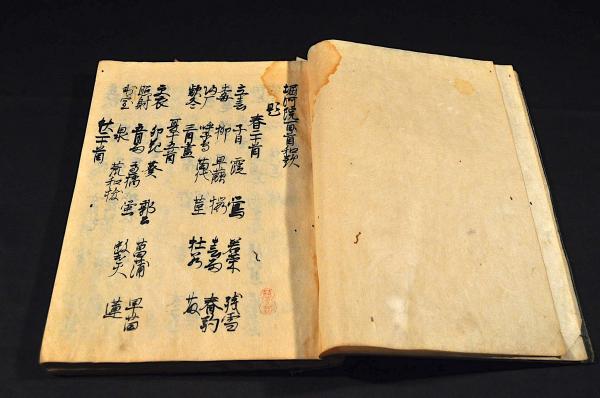 堀河院百首和歌
題
春二十首
立春 子日 霞 鶯 若菜 残雪
梅 柳 早蕨 桜 春雨 春駒
帰雁 喚子鳥 苗代 菫 杜若 藤
款冬 三月尽
夏十五首
更衣 卯花 葵 郭公 菖蒲 早苗
照射 五月雨 盧橘 蛍 蚊遣火 蓮
氷室 泉 荒和祓
秋二十首